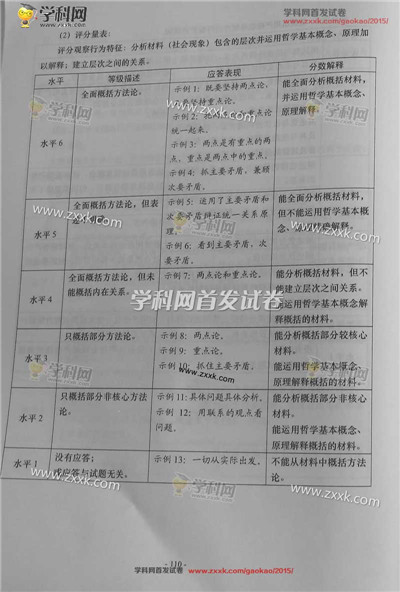 学科网
www.zxxk.com
学科网首发试卷
www.zxxk.com/gaokao/2015/
(2) 评分量表:
评分观察行为特征: 分析材料 (社会现象) 包含的层次并运用哲学基本概念, 原理加
以解释; 建立层次之间的关系。
水平
等级描述
应答表现
分数解释
水平 6
全面概括方法论。
示例 1: 既要坚持两点论,
坚持重点论。
示例 2:
重点论
统一起来。
示例 3: 两点是有重点的两
点, 重点是两点中的重点。
示例 4: 抓主要矛盾, 兼顾
次要矛盾。
能全面分析概括材料,
并运用哲学基本概念、
原理解释。
水平 5
全面概括方法论, 但表
示例 5: 运用了主要矛盾和
次要矛盾辩证统一关系原
理。
示例 6: 看到主要矛盾、次
要矛盾。
能全面分析概括材料,
但不能运用哲学基本概
念、
解释。
www.zxxk.com
水平 4
全面概括方法论, 但未
能概括内在关系。
示例 7: 两点论和重点论。
能分析概括材料, 但不
能建立层次之间关系。
运用哲学基本概念解
释概括的材料。
学科网首发试卷
水平 3
只概括部分方法论。
示例 8: 两点论。
示例 9: 重点论。
示例 10: 抓住主要矛盾。
能分析概括部分较核心
材料。
能运用哲学基本概念、
原理解释概括的材料。
www.zxxk.com
水平 2
只概括部分非核心方法
论。
示例 11: 具体问题具体分析。
示例 12: 用联系的观点看
问题。
能分析概括部分非核心
材料。
能运用哲学基本概念、
原理解释概括的材料。
水平 1
没有应答;
或应答与试题无关。
示例 13: 一切从实际出发。
不能从材料中概括方法
论。
学科网
www.zxxk.com
- 110 -
学科网首发试卷
www.zxxk.com/gaokao/2015/